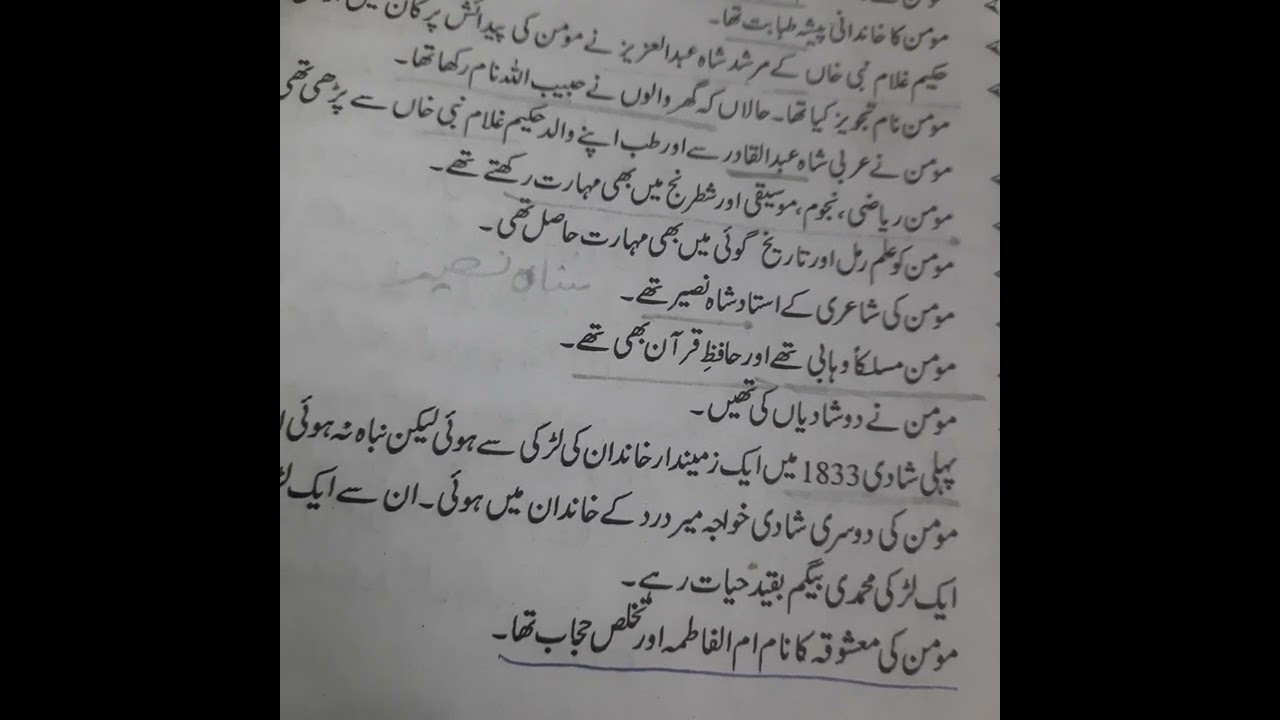 مومن کا خاندانی پیشہ طبابت تھا۔
حکیم غلام نبی خاں کے مرشد شاہ عبدالعزیز نے مومن کی پیدائش پر کان میں
مومن نام تجویز کیا تھا۔ حالاں کہ گھر والوں نے حبیب اللہ نام رکھا تھا۔
مومن نے عربی شاہ عبدالقادر سے اور طب اپنے والد حکیم غلام نبی خاں سے پڑھی تھی
مومن ریاضی، نجوم، موسیقی اور شطرنج میں بھی مہارت رکھتے تھے۔
مومن کو علم رمل اور تاریخ گوئی میں بھی مہارت حاصل تھی۔
شاہ نصیر
مومن کی شاعری کے استاد شاہ نصیر تھے۔
مومن مسلکاً وہابی تھے اور حافظِ قرآن بھی تھے۔
مومن نے دو شادیاں کی تھیں۔
پہلی شادی 1833 میں ایک زمیندار خاندان کی لڑکی سے ہوئی لیکن نباہ نہ ہوئی
مومن کی دوسری شادی خواجہ میر درد کے خاندان میں ہوئی۔ ان سے ایک
ایک لڑکی محمدی بیگم بقید حیات رہے۔
مومن کی معشوقہ کا نام ام الفاطمہ اور تخلص حجاب تھا۔